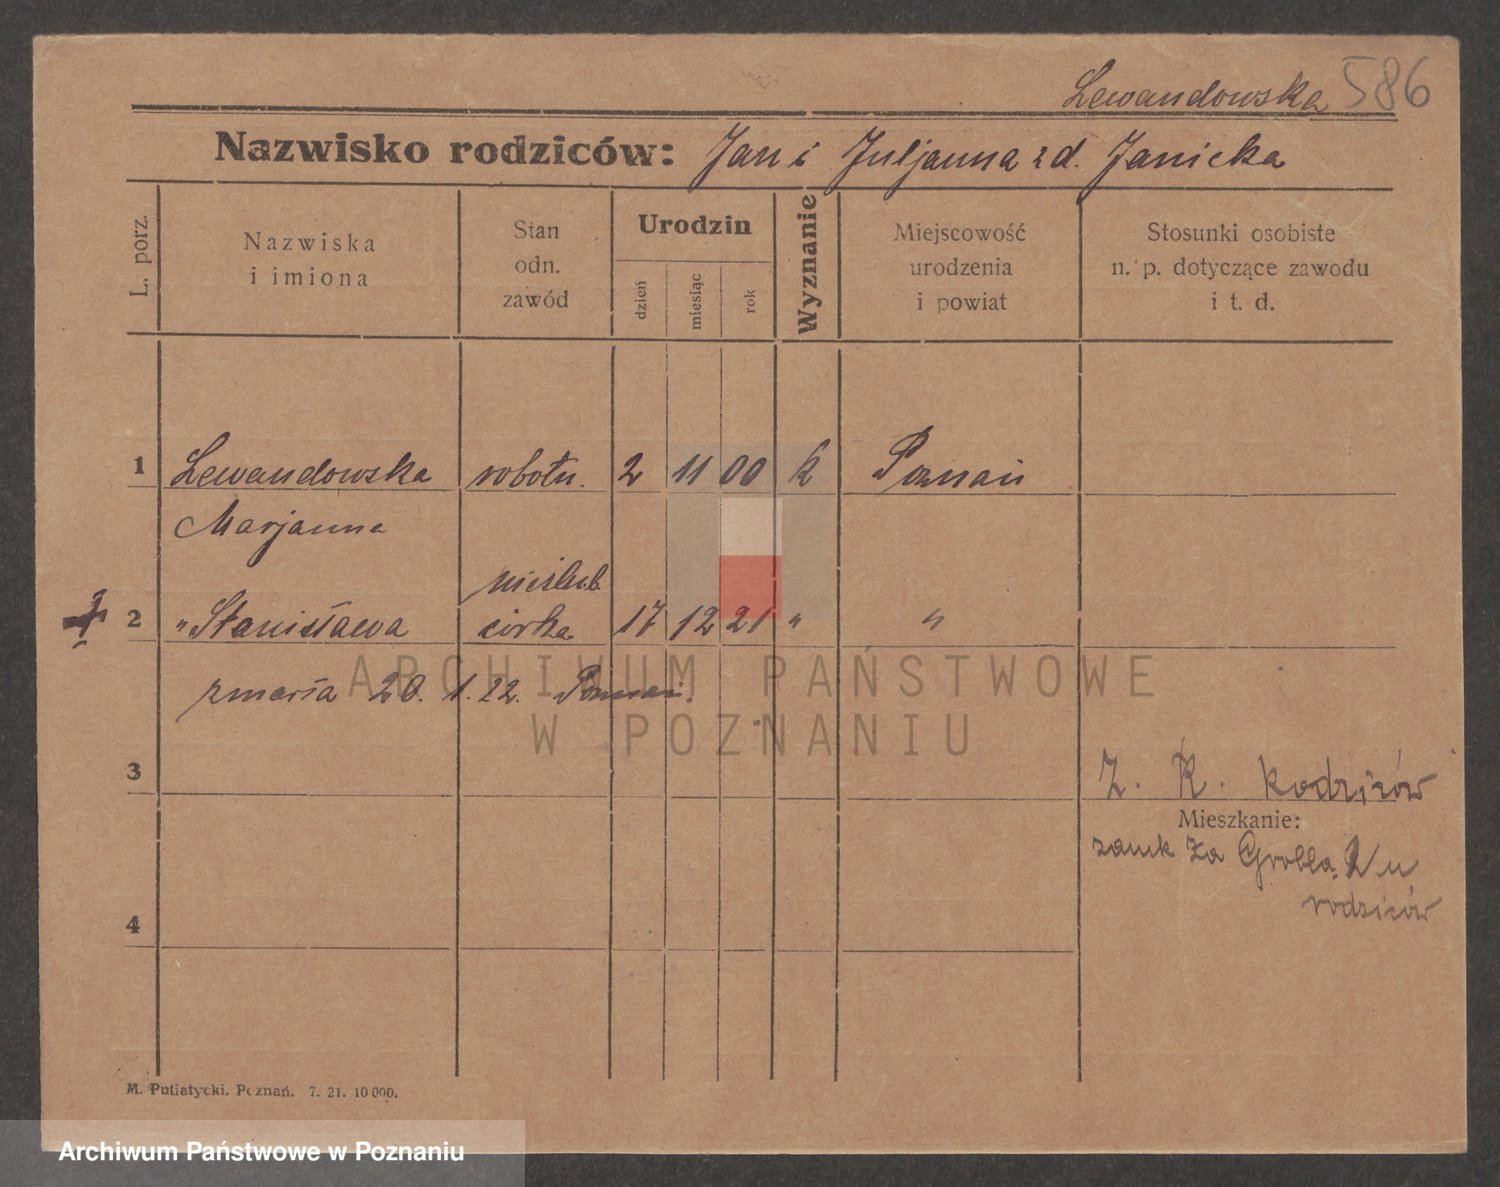 Lewandowska 586
Nazwisko rodziców: Jan i Juljanna z d. Janicka
L. porz.
Nazwiska
i imiona
Stan
odn.
zawód
Urodzin
dzień
miesiąc
rok
Wyznanie
Miejscowość
urodzenia
i powiat
Stosunki osobiste
n. p. dotyczące zawodu
i t. d.
1 Lewandowska robotn. 2 11 00 k Poznań
Marjanna
nieślub.
2 " Stanisława córka 17 12 21 " "
zmarła 20. 1. 22. Poznań.
ARCHIWUM PAŃSTWOWE
W POZNANIU
3
Z. K. Rodziców
Mieszkanie:
zamk Za Groblą 2 u
rodziców
4
M. Putiatycki. Poznań. 7. 21. 10 000.
Archiwum Państwowe w Poznaniu